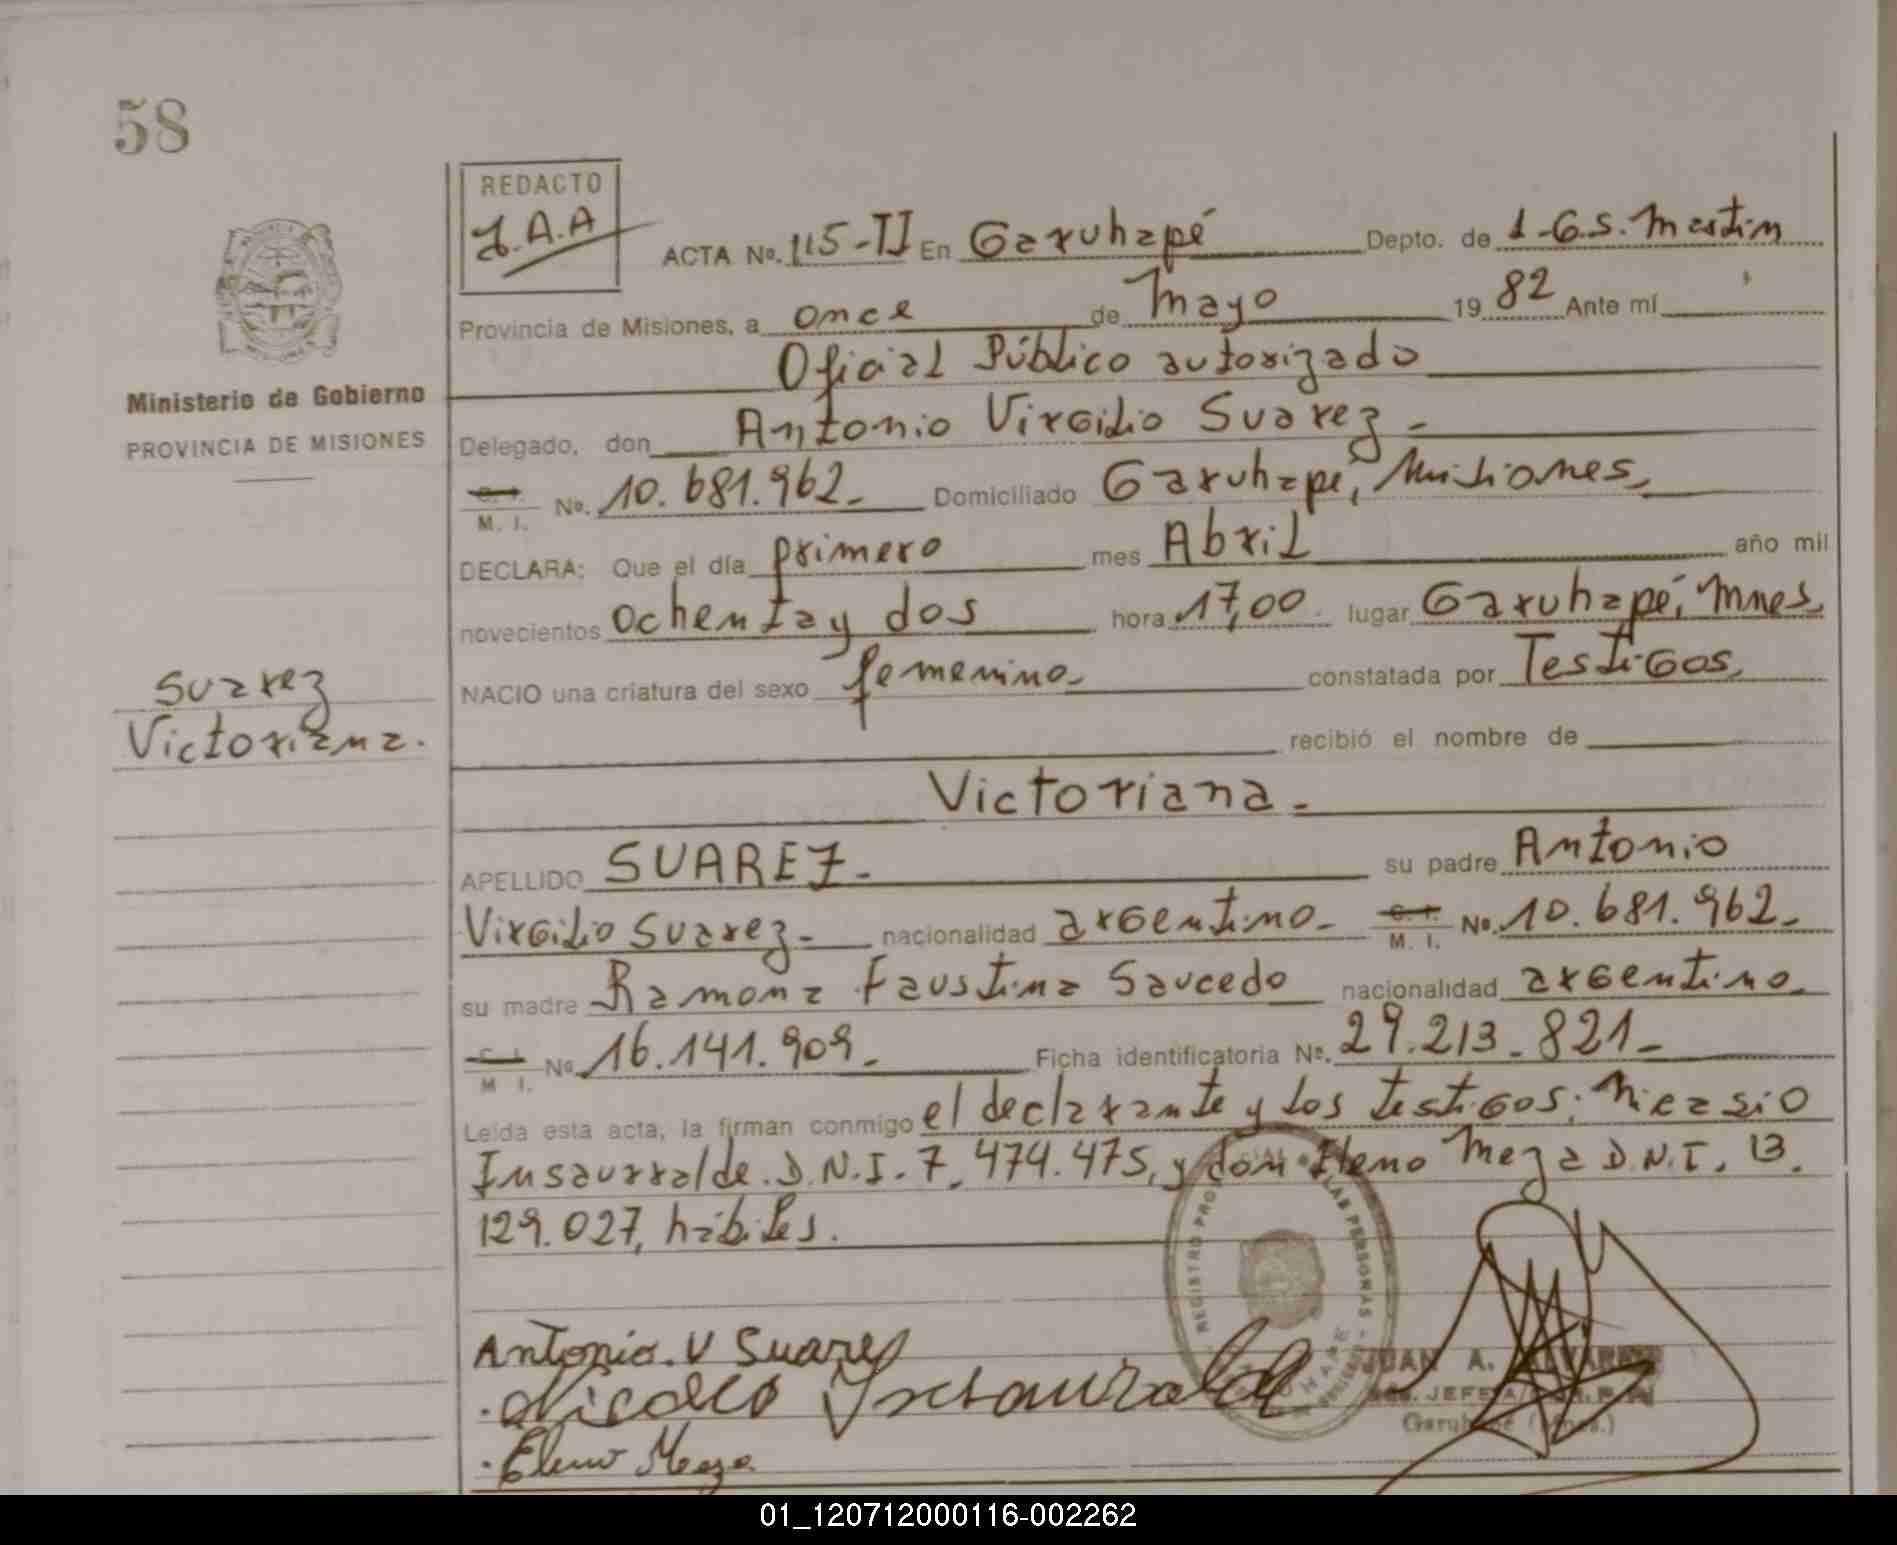 58
REDACTO
J.A.A
ACTA No. 115-II En Garuhapé Depto. de L.G.S. Martin
Provincia de Misiones, a once de Mayo 19 82 Ante mí
Oficial Público autorizado
Ministerio de Gobierno
PROVINCIA DE MISIONES
Delegado, don Antonio Virgilio Suarez -
C. I. M. I. No. 10.681.962- Domiciliado Garuhapé, Misiones,
DECLARA: Que el día primero mes Abril año mil
novecientos ochenta y dos hora 17,00 lugar Garuhapé, Mnes,
NACIO una criatura del sexo femenino- constatada por Testigos,
recibió el nombre de
Suarez
Victoriana.
Victoriana.-
APELLIDO SUAREZ.- su padre Antonio
Virgilio Suarez.- nacionalidad argentino- C. I. M. I. No. 10.681.962-
su madre Ramona Faustina Saucedo nacionalidad argentino-
C. I. M I. No 16.141.909- Ficha identificatoria No. 29.213-821-
Leída esta acta, la firman conmigo el declarante y los testigos;
Insaurralde. D.N.I. 7.474.475, y don Eleno Meza D.N.I. 13.
129.027, hábiles.
REGISTRO LAS PERSONAS
Antonio. V Suarez
Eleno Meza
JUAN A. ALVAREZ
JEFE
Garuhapé (Mnes.)
01_120712000116-002262